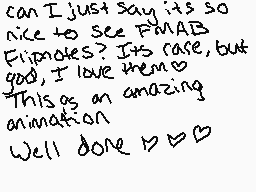 can I just say its so
nice to see FMAB
Flipnotes? Its rare, but
god, I love them♡
This as an amazing
animation
Well done ♡ ♡ ♡